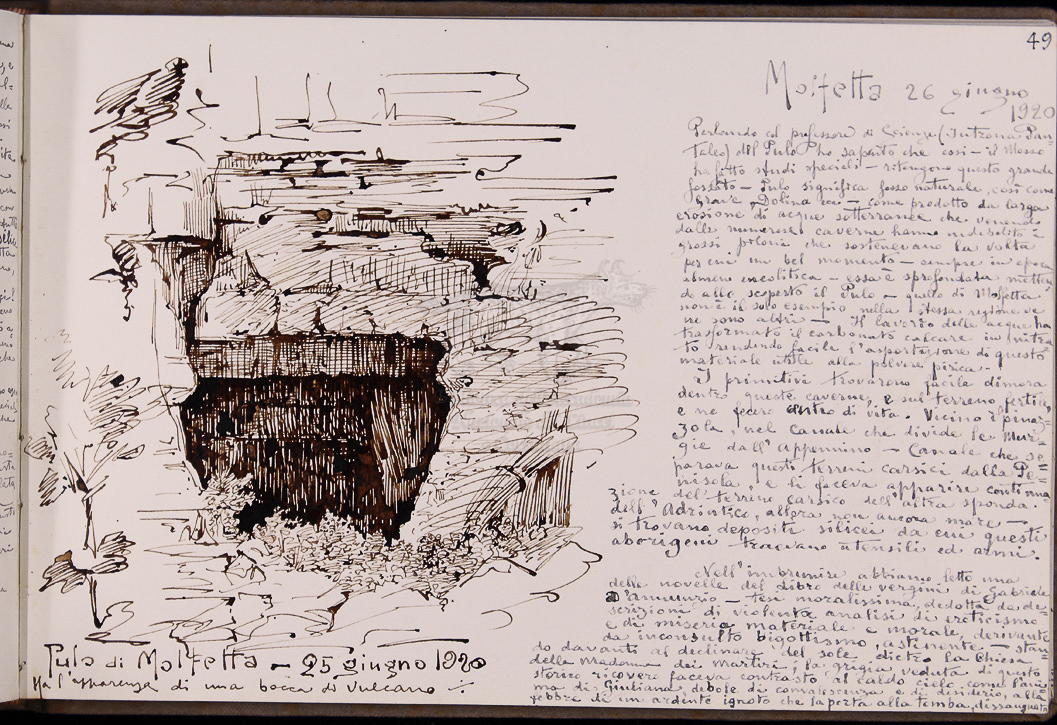 49
Molfetta 26 giugno
1920
Parlando col professore di Scienze (Introna Pan=
taleo) del Pulo ho saputo che essi - il Mosso
ha fatto studi speciali - ritengono questo grande
fossato - Pulo significa fosso naturale, così come
grave, Dolina ecc - come prodotto da larga
erosione di acque sotterranee che venendo
dalle numerose caverne hanno indebolito i
grossi piloni che sostenevano la volta
per cui un bel momento - sempre in epoca
almeno eneolitica - essa è sprofondata metten
do allo scoperto il Pulo - quello di Molfetta
non è il solo esempio nella stessa regione ve
ne sono altri - Il lavorio delle acque ha
trasformato il carbonato calcare in nitra
to rendendo facile l'asportazione di questo
materiale utile alla polvere pirica -
I primitivi trovarono facile dimora
dentro queste caverne, e sul terreno fertile,
e ne fecero centro di vita. Vicino Spinaz=
zola, nel Canale che divide le Mur=
gie dall'Appennino - Canale che se=
parava questi terreni carsici dalla Pe=
nisola e li faceva apparire continua
zione del terreno carsico dell'altra sponda
dell'Adriatico, allora non ancora mare -
si trovano depositi silicei da cui questi
aborigeni traevano utensili ed armi.
Nell'imbrunire abbiamo letto una
delle novelle del libro delle vergini di Gabriele
D'Annunzio - tesi moralissima, dedotta da de=
scrizioni di violenta analisi di erotismo
e di miseria materiale e morale, derivante
da inconsulto bigottismo, astinente - stan
do davanti al declinare del sole dietro la Chiesa
della Madonna dei Martiri; la grigia veduta di questo
storico ricovero faceva contrasto al caldo cielo come l'ani
ma di Giuliana, debole di convalescenza e di desiderio, alla
febbre di un ardente ignoto che la porta alla tomba, dissanguata
Pulo di Molfetta - 25 giugno 1920
Ha l'apparenza di una bocca di Vulcano